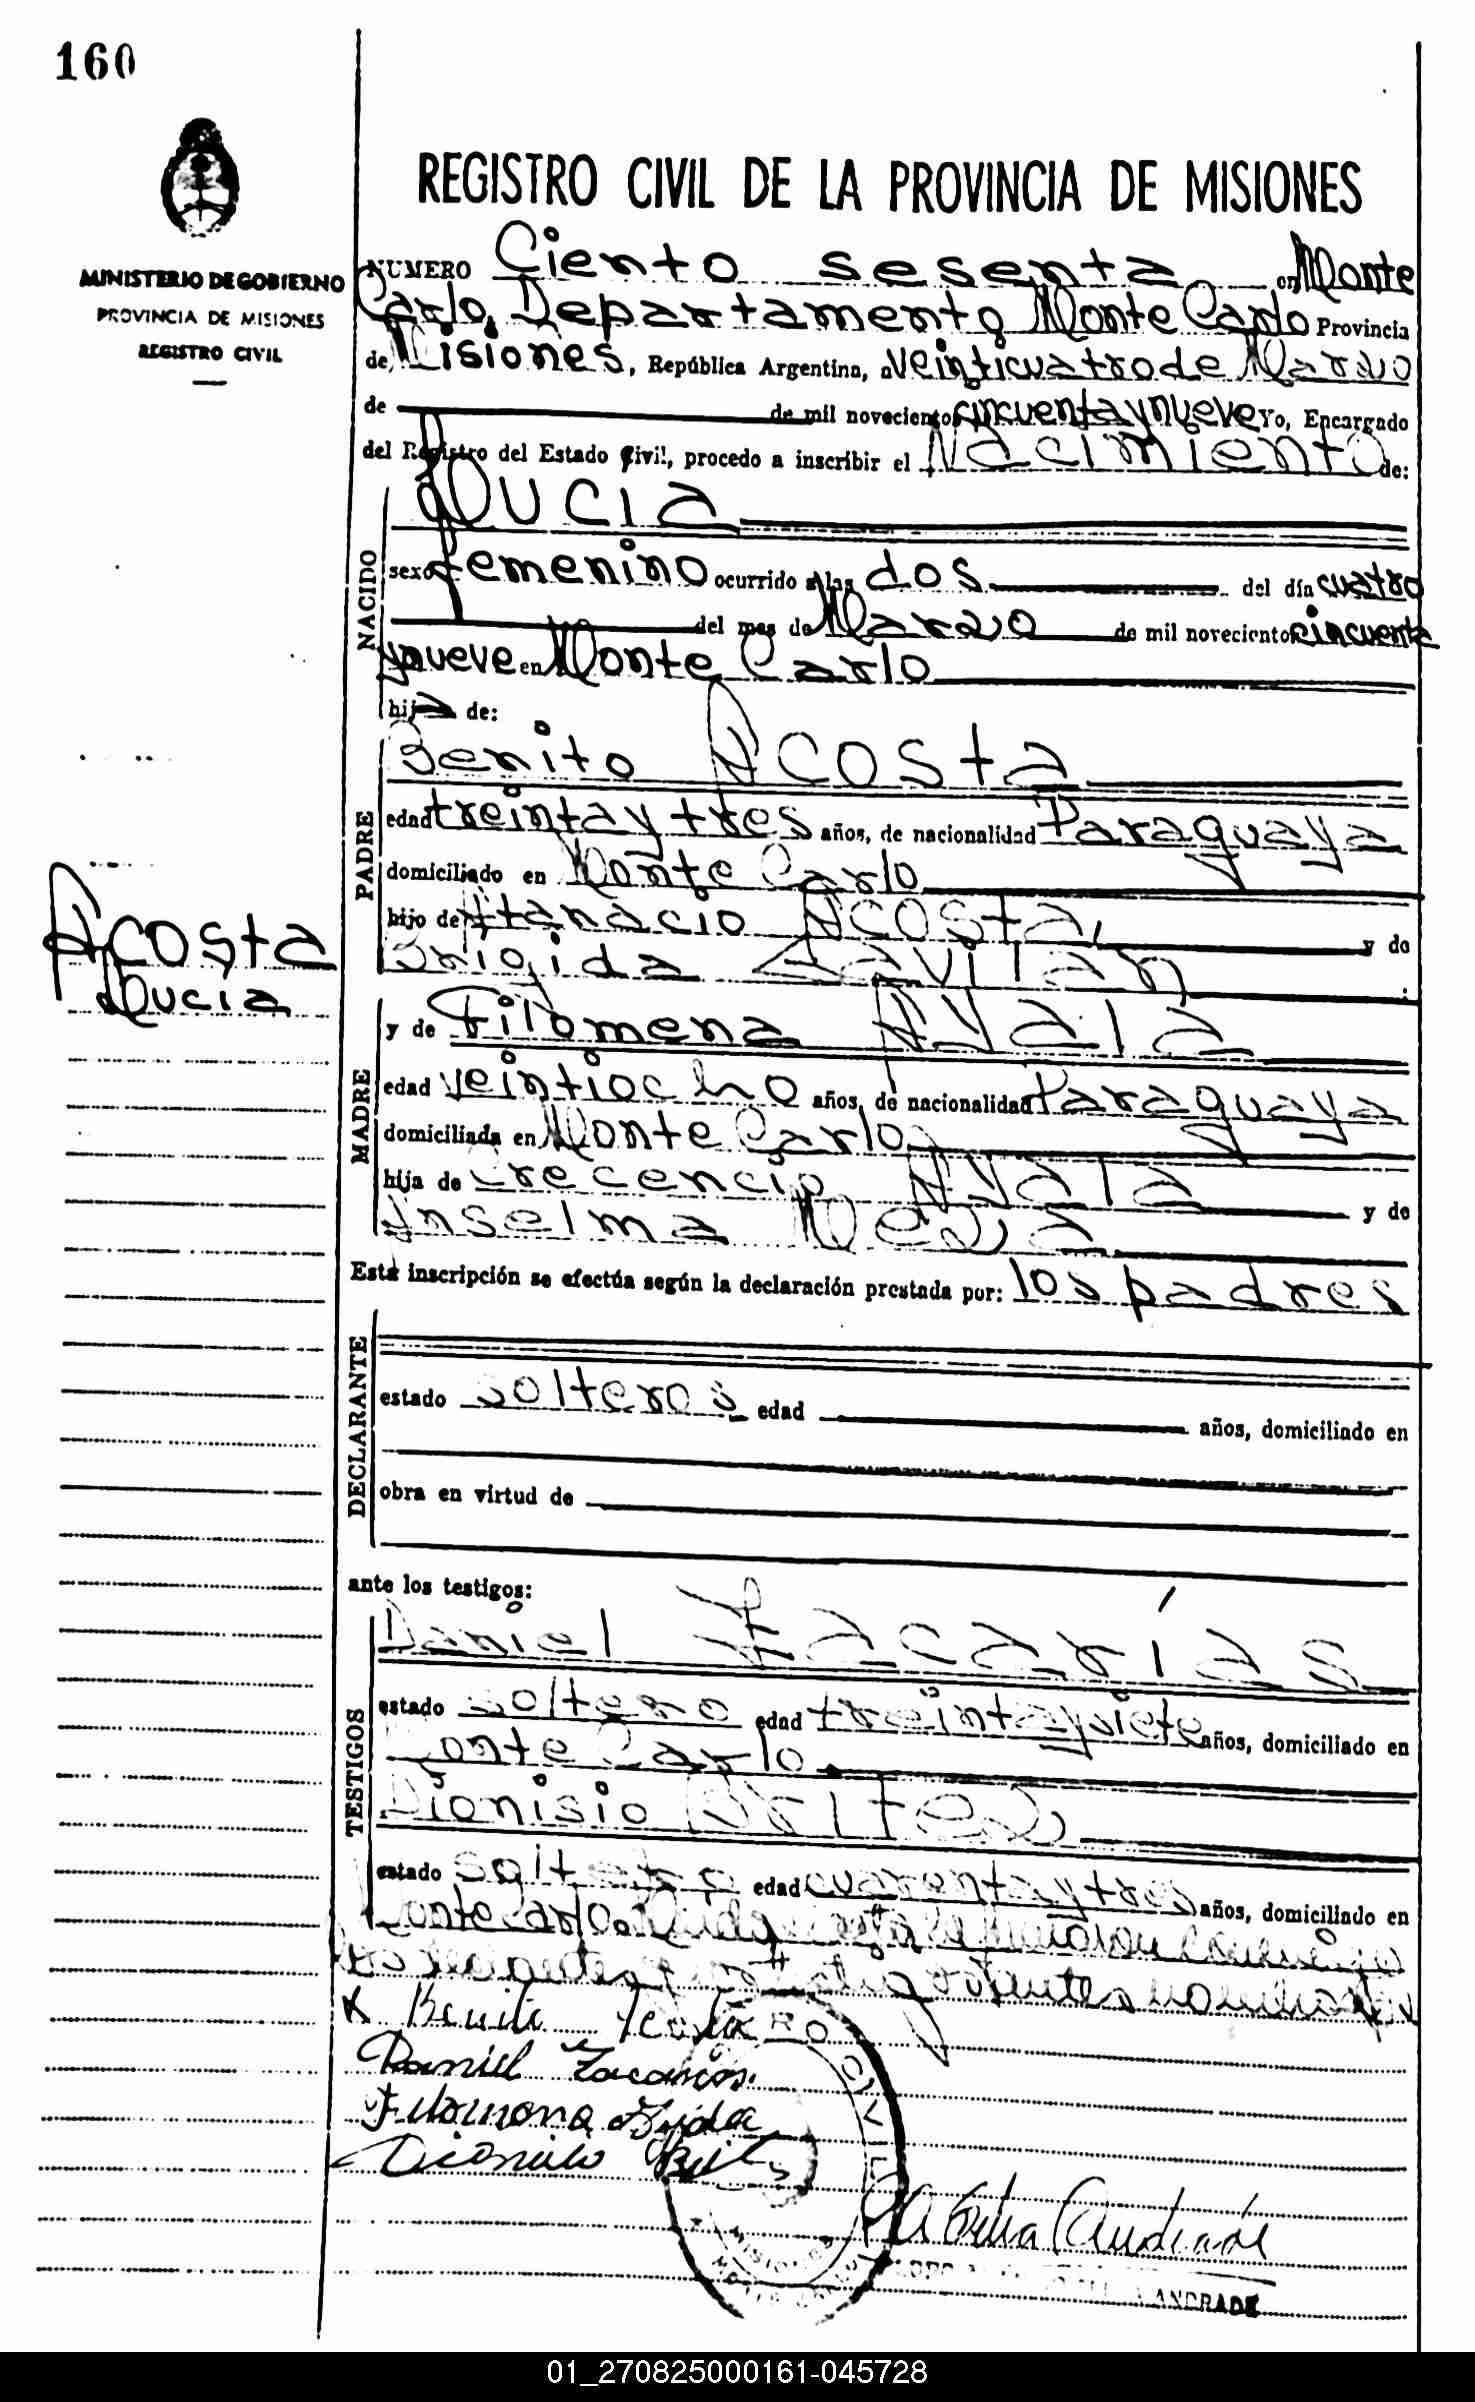 160
REGISTRO CIVIL DE LA PROVINCIA DE MISIONES
MINISTERIO DE GOBIERNO
PROVINCIA DE MISIONES
REGISTRO CIVIL
NUMERO Ciento sesenta en Monte
Carlo, Departamento Monte Carlo Provincia
de Misiones, República Argentina, a veinticuatro de Marzo
de de mil novecientos cincuenta y nueve Yo, Encargado
del Registro del Estado Civil, procedo a inscribir el Nacimiento de:
NACIDO
Lucia
sexo femenino ocurrido a las dos del día cuatro
del mes de Marzo de mil novecientos cincuenta
y nueve en Monte Carlo
hija de:
PADRE
Benito Acosta
edad treinta y tres años, de nacionalidad Paraguaya
domiciliado en Monte Carlo
hijo de Atanacio Acosta, y de
Brigida Gavilan
Acosta
Lucia
MADRE
y de Filomena Ayala
edad veintiocho años, de nacionalidad Paraguaya
domiciliada en Monte Carlo
hija de Crecencio Ayala y de
Anselma Meza
Esta inscripción se efectúa según la declaración prestada por: los padres
DECLARANTE
estado solteros edad años, domiciliado en
obra en virtud de
ante los testigos:
TESTIGOS
Daniel Zacarías
estado soltero edad treinta y siete años, domiciliado en
Monte Carlo
Dionisio Britez
estado soltero edad cuarenta y tres años, domiciliado en
Monte Carlo. Leida
x Benito Acosta
Daniel Zacarias
Filomena Ayala
Dionisio Britez
REGISTRO CIVIL
MISIONES
Andrade
ANDRADE
01_270825000161-045728